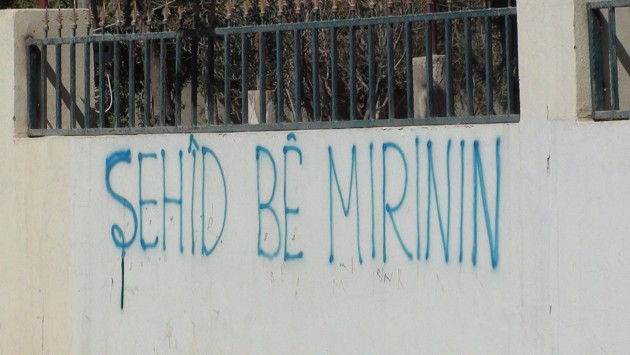 ŞEHÎD BÊ MIRININ